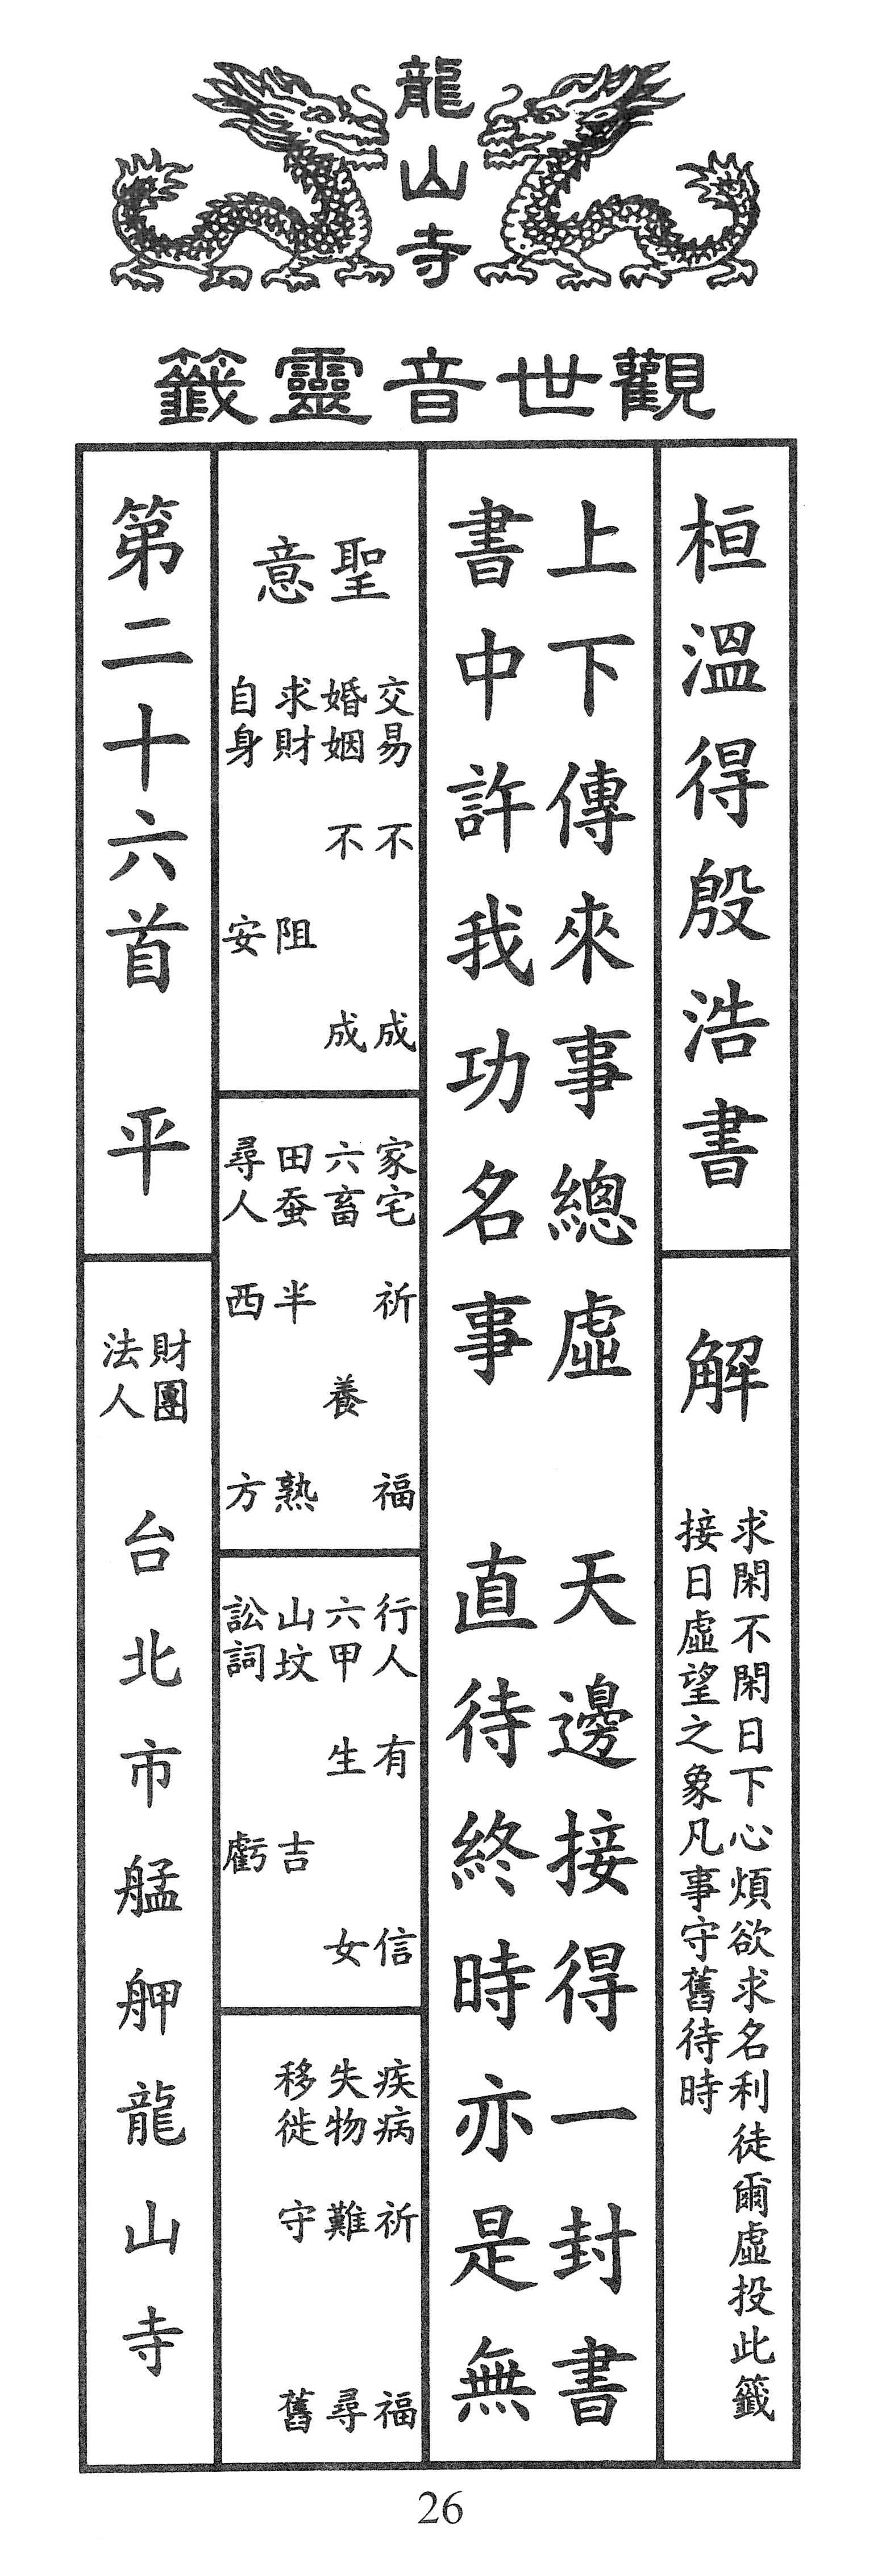 龍山寺
觀世音靈籤
桓溫得殷浩書
解
求閑不閑日下心煩欲求名利徒爾虛投此籤
接日虛望之象凡事守舊待時
上下傳來事總虛　天邊接得一封書
書中許我功名事　直待終時亦是無
聖意
交易　不成
婚姻　不成
求財　阻
自身　安
家宅　祈福
六畜　養
田蚕　半熟
尋人　西方
行人　有信
六甲　生女
山坟　吉
訟詞　虧
疾病　祈福
失物　難尋
移徙　守舊
第二十六首　平
財團法人
台北市艋舺龍山寺
26